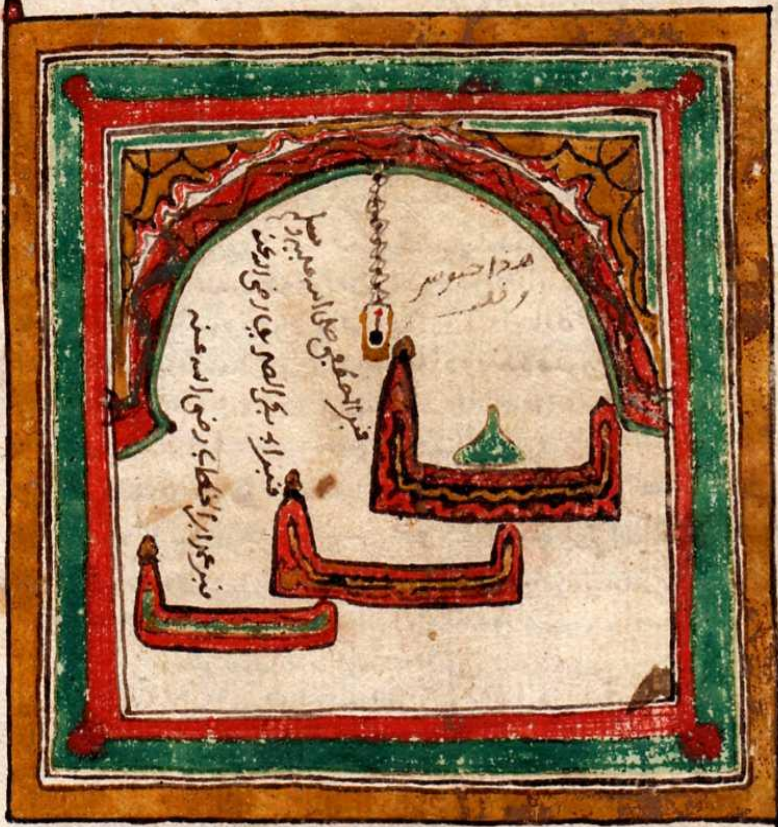 هذا
قبر النبي صلى الله عليه وسلم
قبر ابي بكر الصديق رضي الله عنه
قبر عمر ابن الخطاب رضي الله عنه